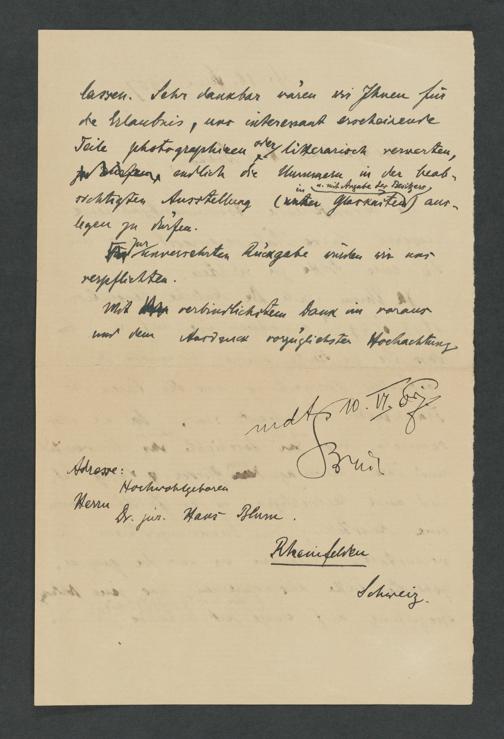 lassen. Sehr dankbar wären wir Ihnen für
die Erlaubnis, uns interessant erscheinende
Teile photographieren oder litterarisch verwerten,
endlich die Nummern in der beab-
sichtigten Ausstellung (in Glaskasten u. mit Angabe des Besitzers) aus-
legen zu dürfen.
Zur unversehrten Rückgabe würden wir uns
verpflichten.
Mit verbindlichstem Dank im voraus
und dem Ausdruck vorzüglichster Hochachtung
mdt 10. VI.
Adresse:
Hochwohlgeboren
Herrn
Dr. jur. Hans Blum.
Rheinfelden
Schweiz.